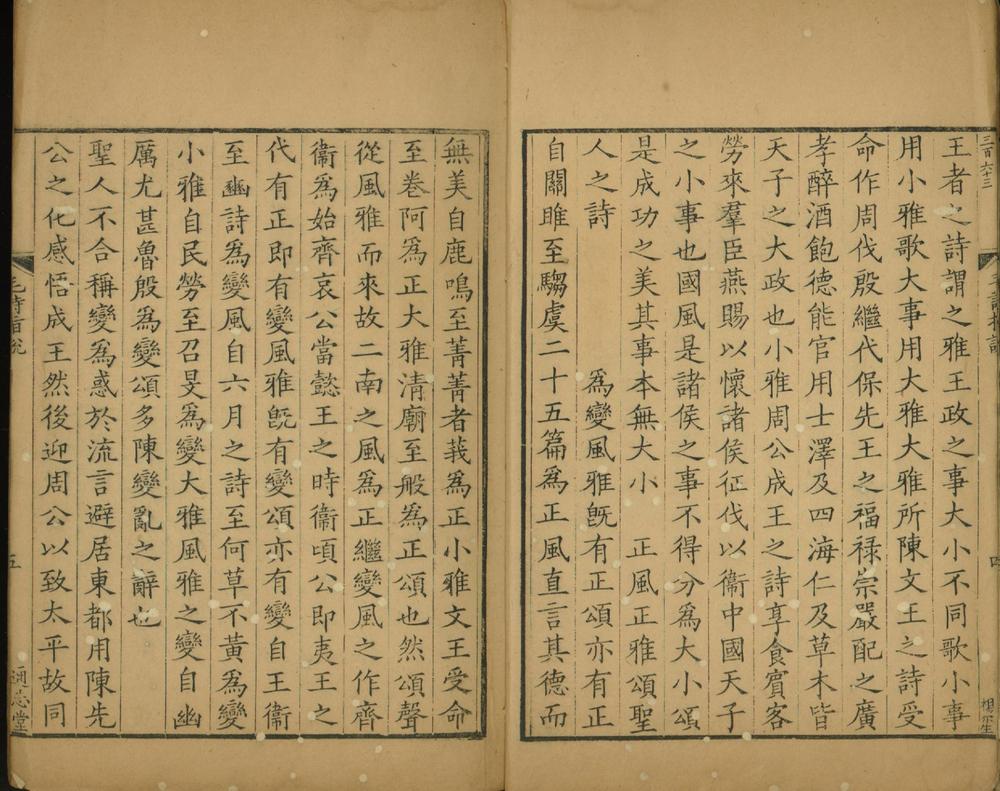 三百六十三
王者之詩謂之雅王政之事大小不同歌小事
用小雅歌大事用大雅大雅所陳文王之詩受
命作周伐殷繼代保先王之福禄崇嚴配之廣
孝醉酒飽德能官用士澤及四海仁及草木皆
天子之大政也小雅周公成王之詩享食賓客
勞來羣臣燕賜以懷諸侯征伐以衞中國天子
之小事也國風是諸侯之事不得分為大小頌
是成功之美其事本無大小　正風正雅頌聖
人之詩　　　　為變風雅旣有正頌亦有正
自關雎至騶虞二十五篇為正風直言其德而
無美自鹿鳴至菁菁者莪為正小雅文王受命
至卷阿為正大雅清廟至般為正頌也然頌聲
從風雅而來故二南之風為正繼變風之作齊
衞為始齊哀公當懿王之時衞頃公即夷王之
代有正即有變風雅旣有變頌亦有變自王衞
至豳詩為變風自六月之詩至何草不黃為變
小雅自民勞至召旻為變大雅風雅之變自幽
厲尤甚魯殷為變頌多陳變亂之辭也
聖人不合稱變為惑於流言避居東都用陳先
公之化感悟成王然後迎周公以致太平故同
毛詩指說
五
通志堂